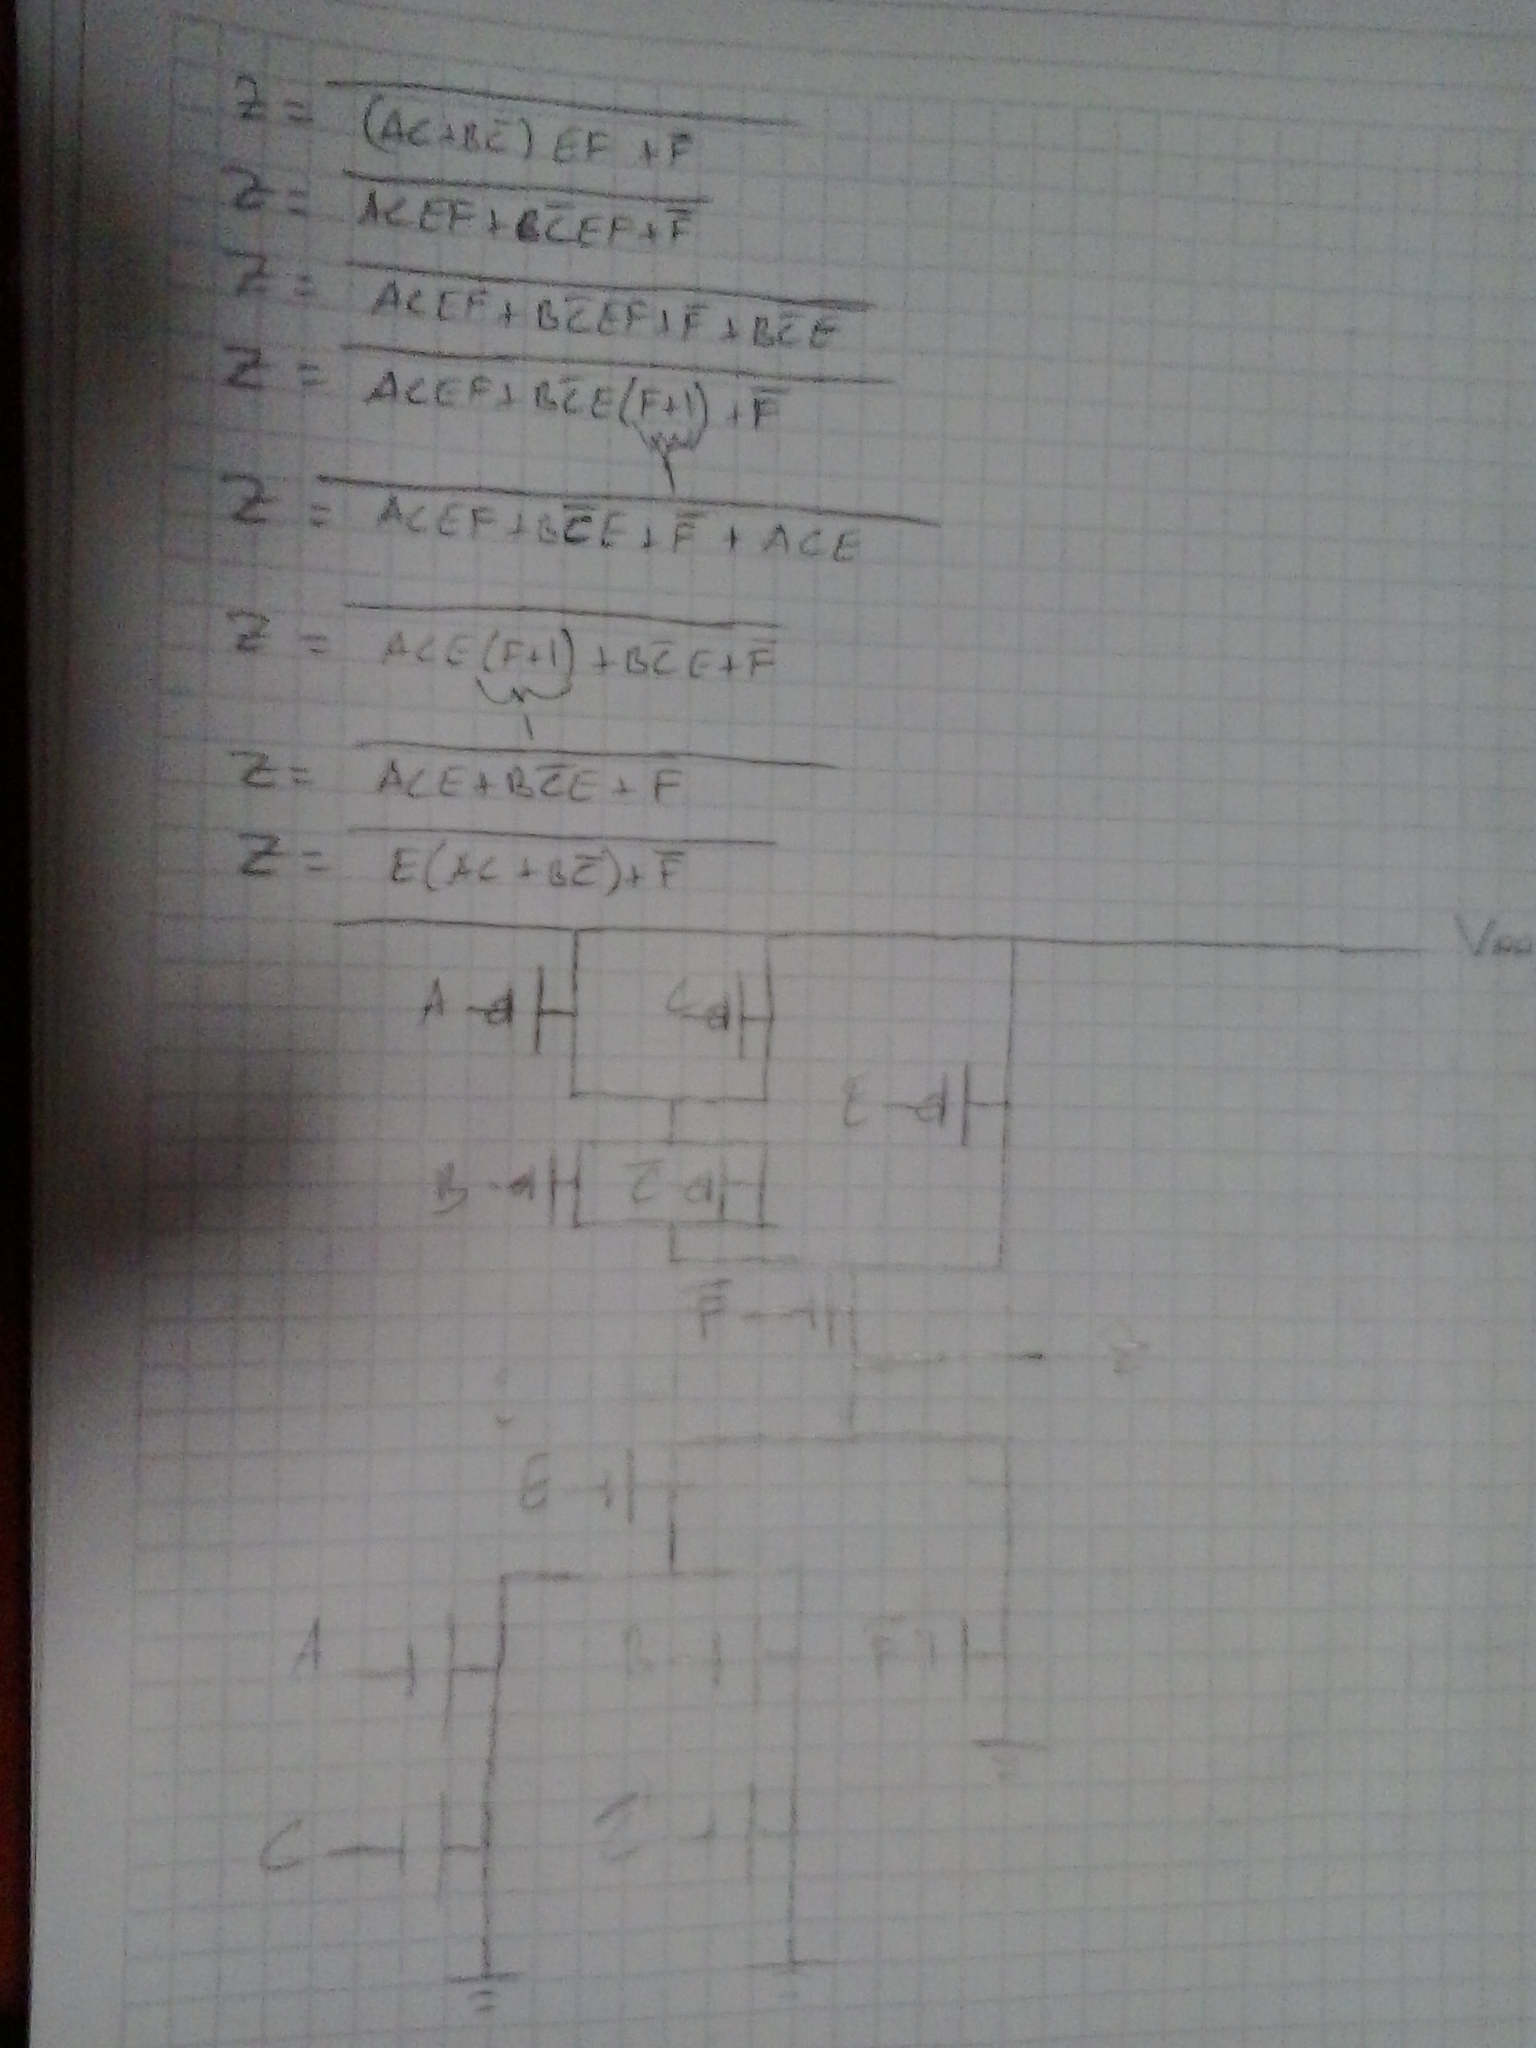 Z = \overline{(AC+BC̅) EF + F̅}
Z = \overline{ACEF+BC̅EF+F̅}
Z = \overline{ACEF+BC̅EF+F̅+BC̅E}
Z = \overline{ACEF+BC̅E(F+1)+F̅}
1
Z = \overline{ACEF+BC̅E+F̅+ACE}
Z = \overline{ACE(F+1)+BC̅E+F̅}
1
Z = \overline{ACE+BC̅E+F̅}
Z = \overline{E(AC+BC̅)+F̅}
VDD
A C
E
B C̅
F̅
Z
E
A B F̅
C C̅